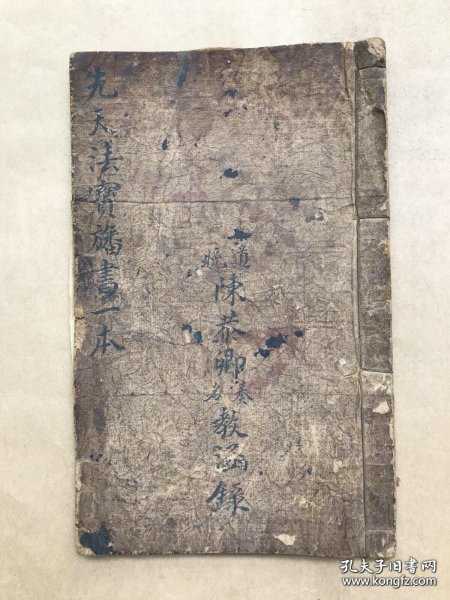 先天法寶旛書一本
道晚陳恭卿奉教涵錄
孔夫子旧书网
www.kongfz.com